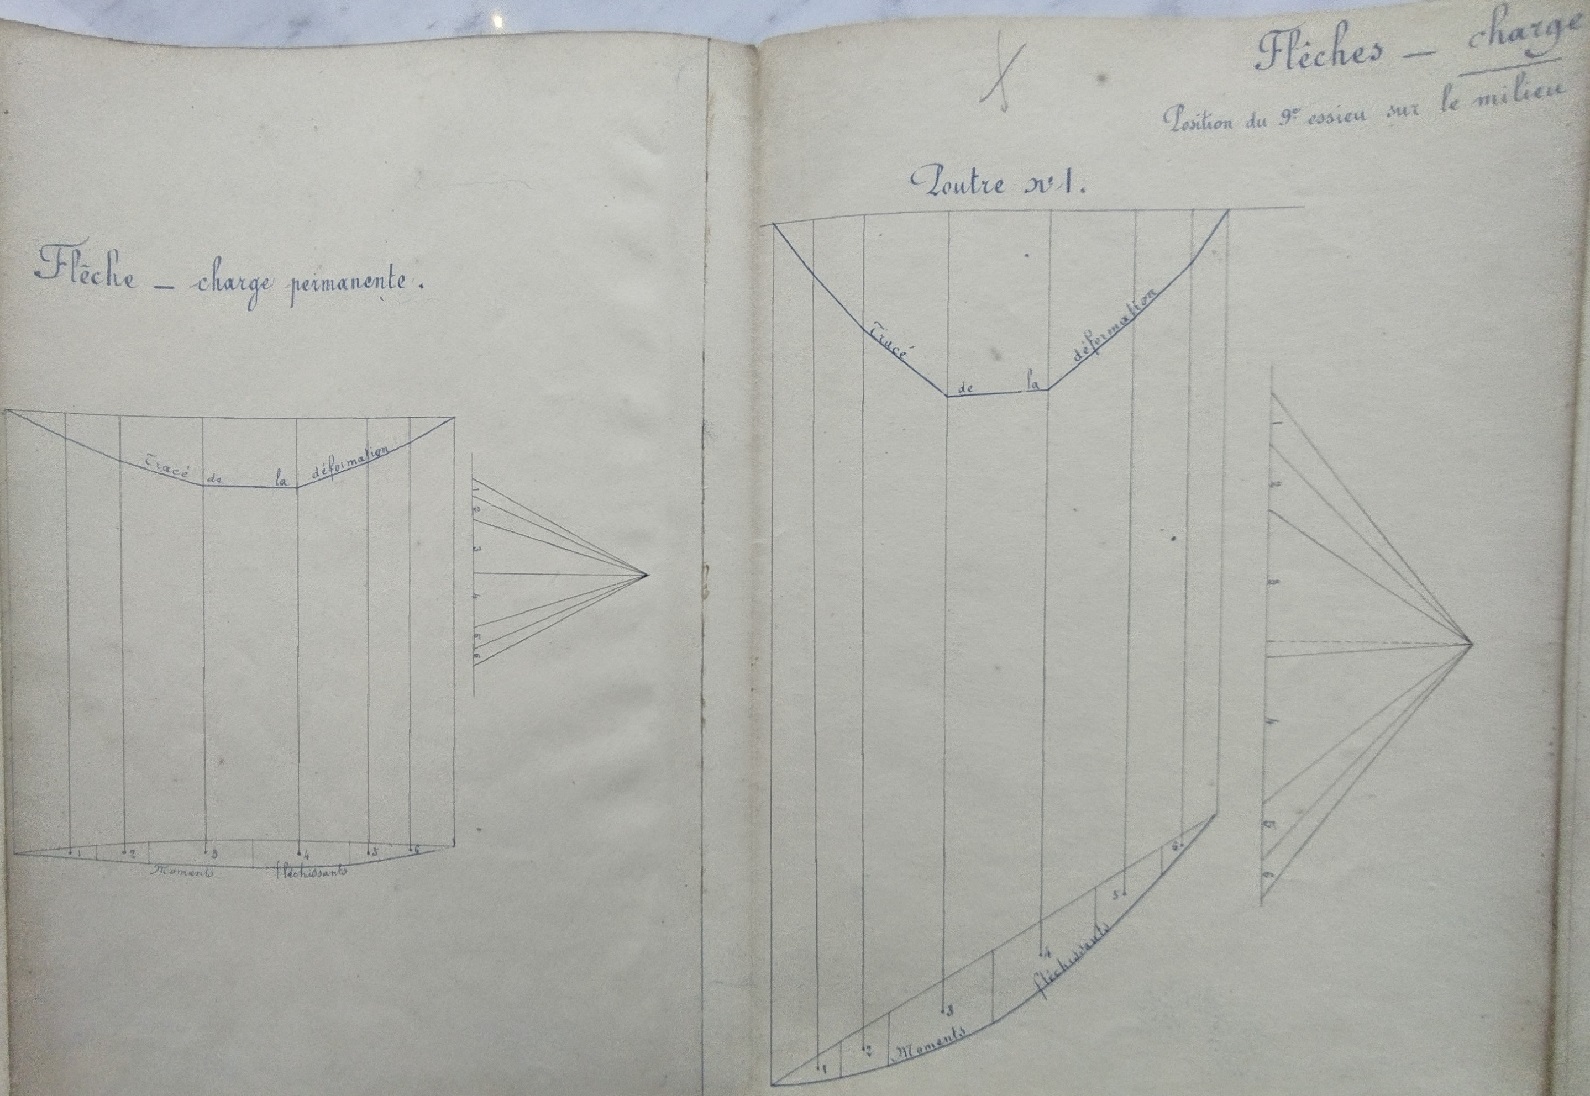 Flêche — charge permanente.
Tracé de la déformation
1 2 3 4 5 6
1 2 3 4 5 6
Moments fléchissants
Flêches — charge
Position du 9e essieu sur le milieu
Poutre No 1.
Tracé de la déformation
1 2 3 4 5 6
1 2 3 4 5 6
Moments fléchissants